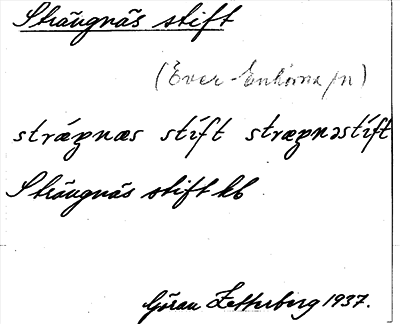 Strängnäs stift
(Över-Enhörna sn)
strä́ŋnæs stíft stræŋnəstíft
Strängnäs stift kb
Göran Zetterberg 1937.